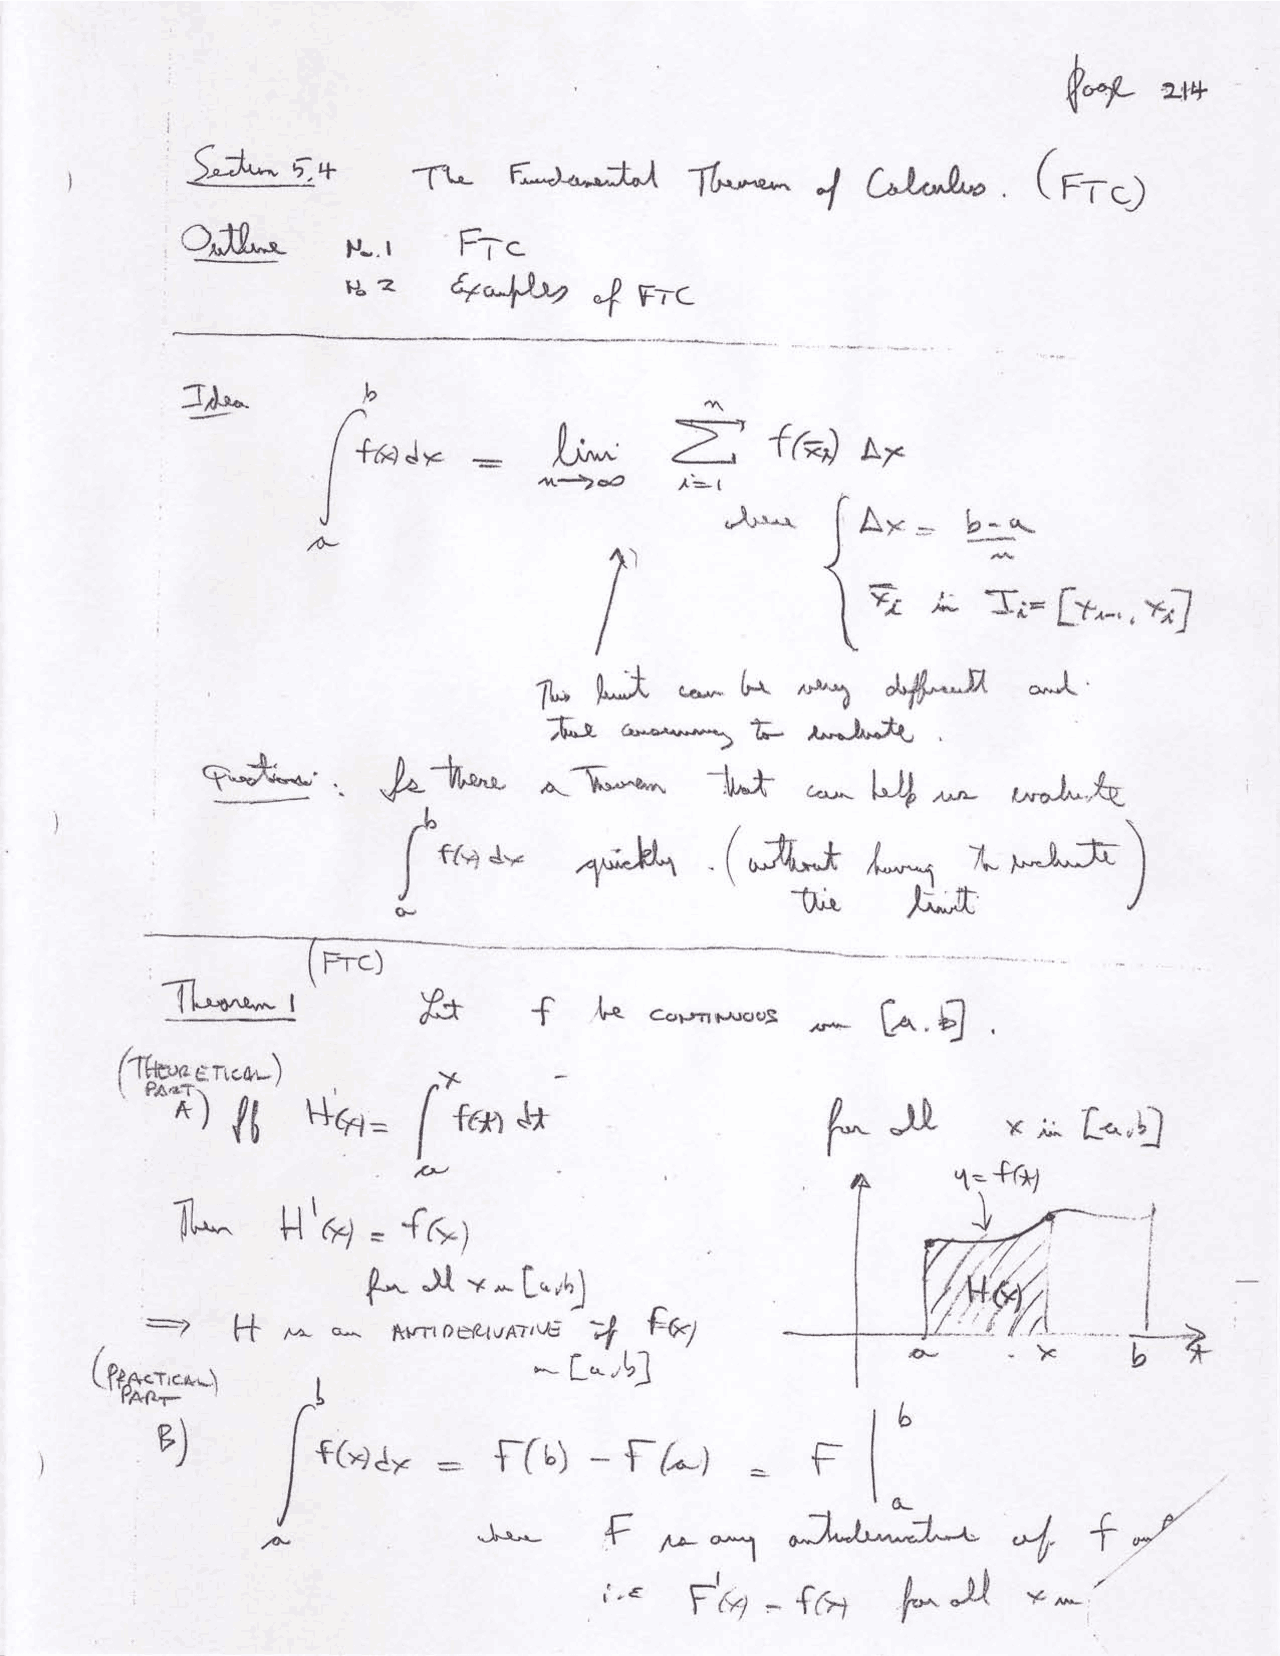 Page 214
Section 5.4 The Fundamental Theorem of Calculus. (FTC)
Outline No. 1 FTC
No 2 Examples of FTC
Idea ∫_a^b f(x) dx = lim_{n→∞} ∑_{i=1}^n f(x̄_i) Δx
where { Δx = (b-a)/n
x̄_i in I_i = [x_{i-1}, x_i]
This limit can be very difficult and
time consuming to evaluate.
Question: Is there a Theorem that can help us evaluate
∫_a^b f(x) dx quickly. (without having to evaluate
the limit)
(FTC)
Theorem 1 Let f be CONTINUOUS on [a, b].
(THEORETICAL PART)
A) If H(x) = ∫_a^x f(t) dt for all x in [a, b]
y = f(t)
Then H'(x) = f(x)
for all x in [a, b]
H(x)
⇒ H is an ANTIDERIVATIVE of f(x)
on [a, b]
a x b t
(PRACTICAL PART)
B) ∫_a^b f(x) dx = F(b) - F(a) = F |_a^b
where F is any antiderivative of f on
i.e F'(x) = f(x) for all x in